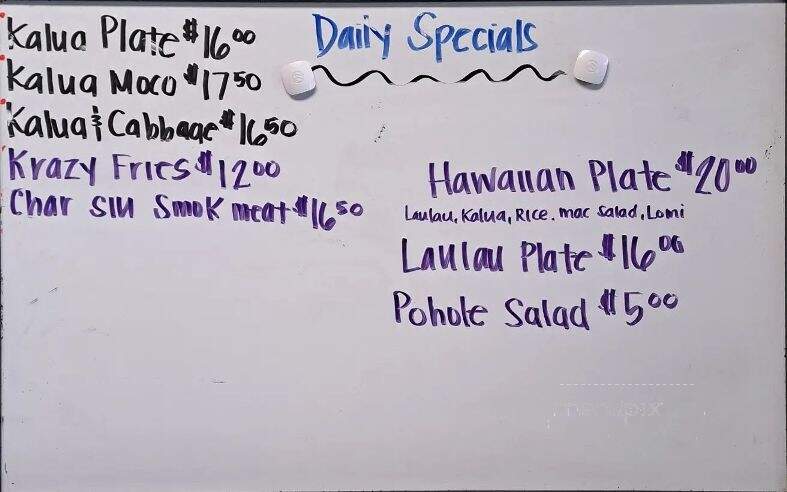 Daily Specials
Kalua Plate $16.00
Kalua Moco $17.50
Kalua & Cabbage $16.50
Krazy Fries $12.00
Char Siu Smok meat $16.50
Hawaiian Plate $20.00
Laulau, Kalua, Rice. mac Salad, Lomi
Laulau Plate $16.00
Pohole Salad $5.00